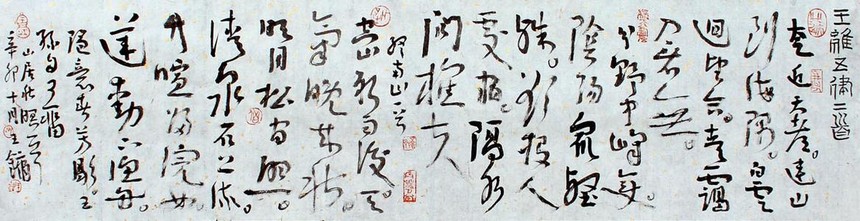 王維五律二首
太乙近天都。連山
到海隅。白雲
迴望合。青靄
入看無。
分野中峰變
陰晴眾壑
殊。欲投人
處宿。隔水
問樵夫
終南山一首
空山新雨後。天
氣晚來秋。
明月松間照。
清泉石上流。
竹喧歸浣女。
蓮動下漁舟。
隨意春芳歇。王
孫自可留
山居秋暝一首
辛卯十月王鏞